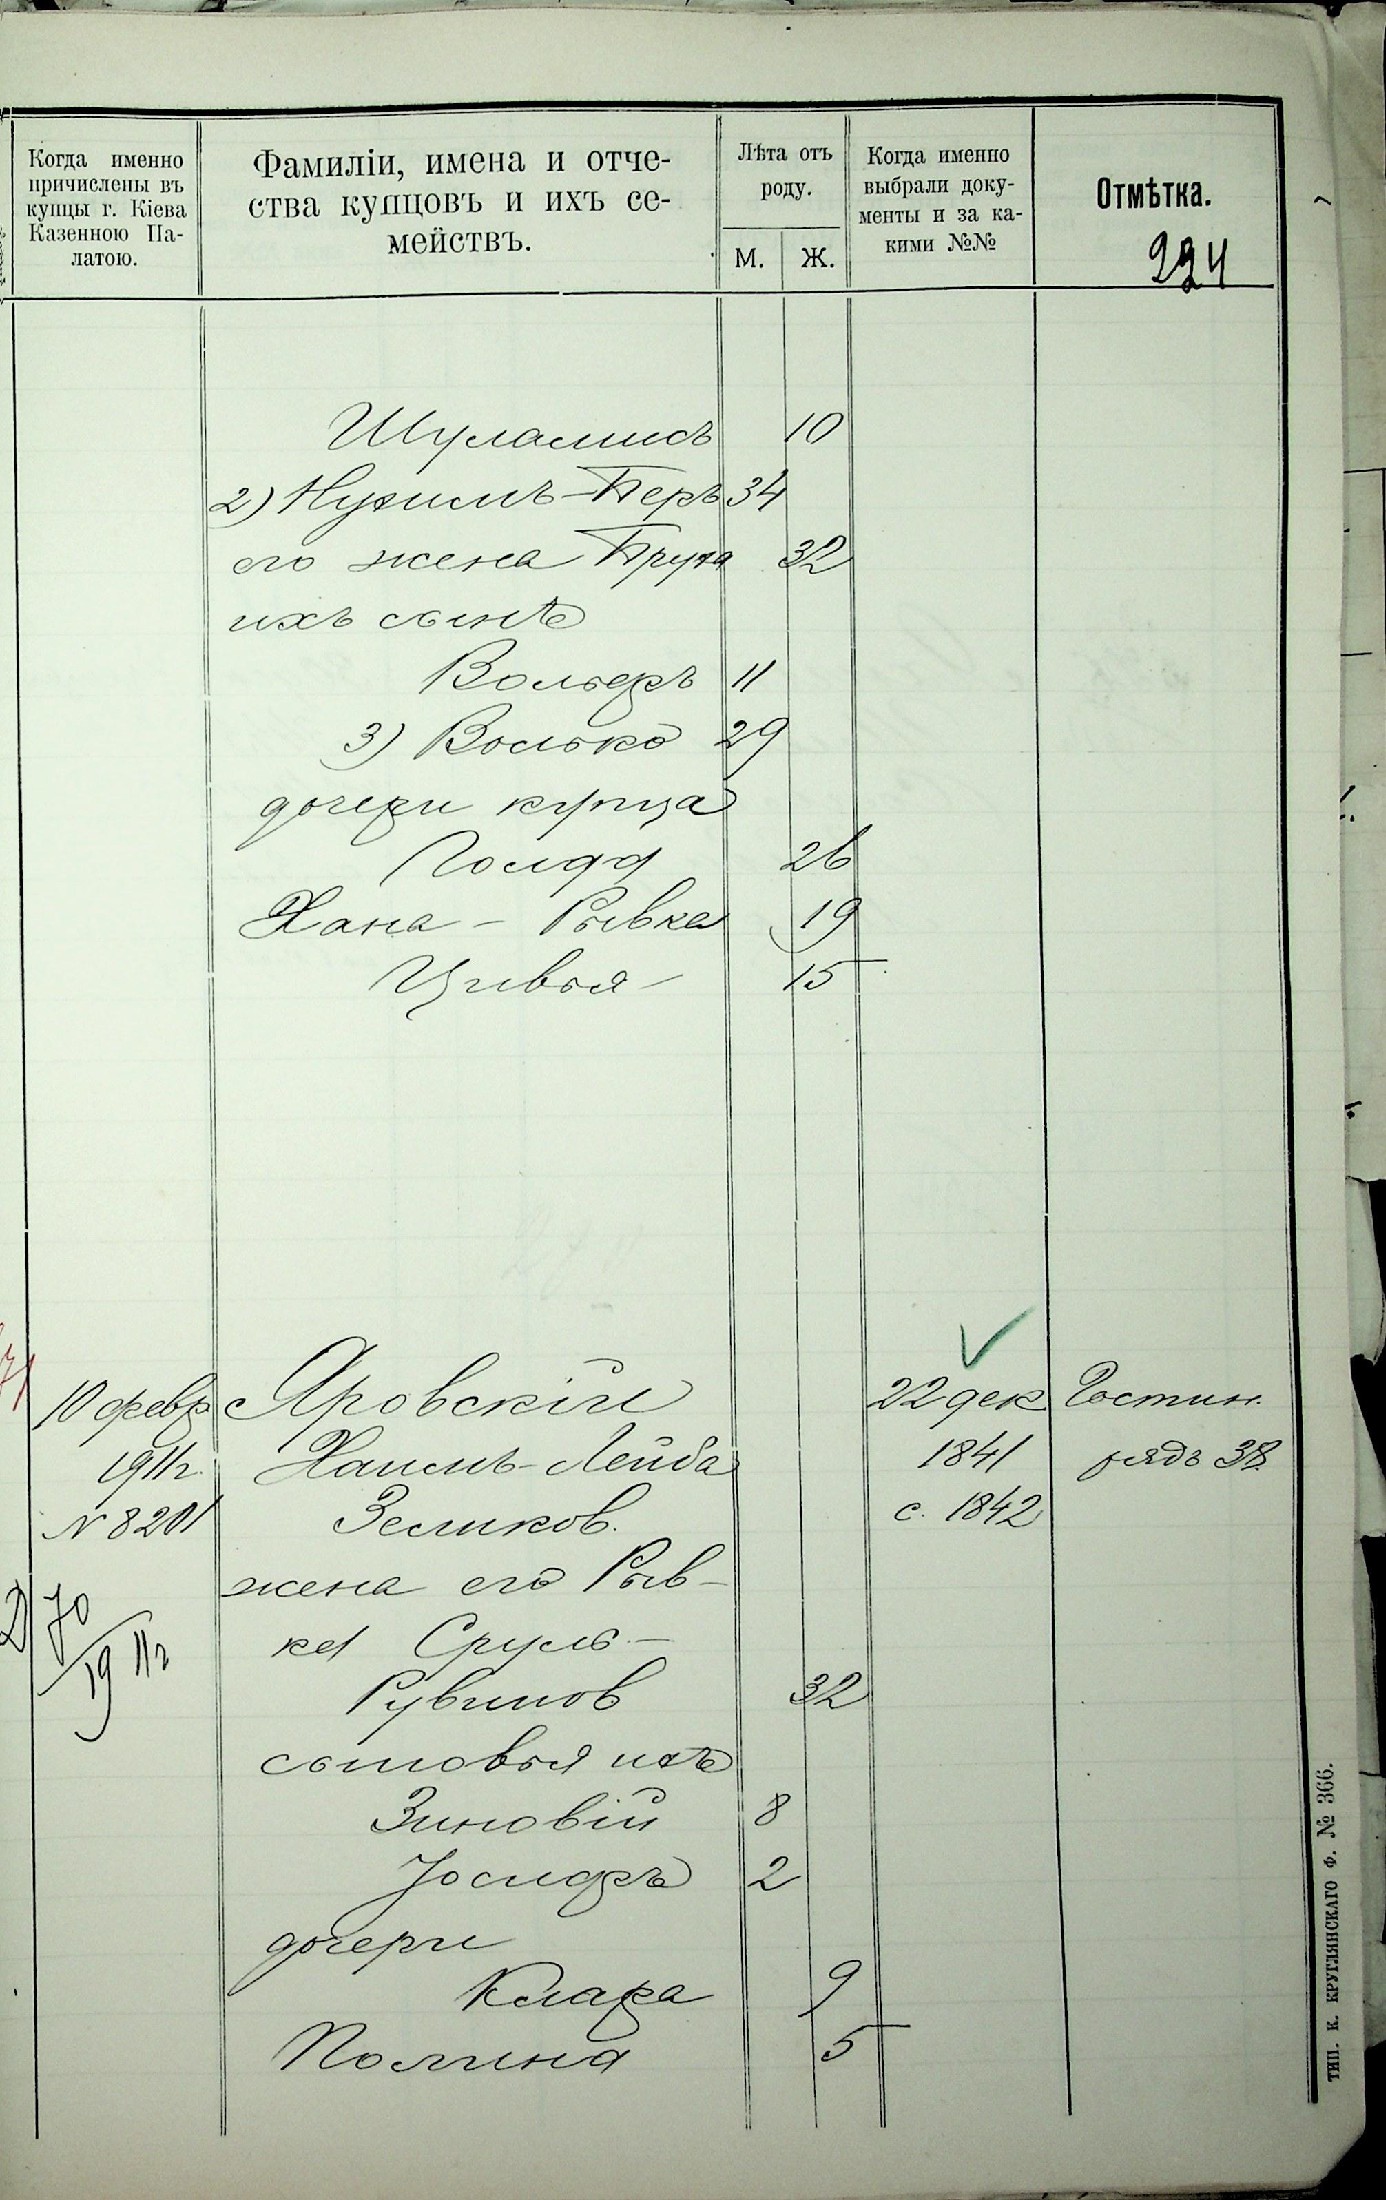 Когда именно
причислены въ
купцы г. Кіева
Казенною Па-
латою.
Фамиліи, имена и отче-
ства купцовъ и ихъ се-
мействъ.
Лѣта отъ
роду.
М. Ж.
Когда именно
выбрали доку-
менты и за ка-
кими №№
Отмѣтка.
224
Шуламись 10
2) Нухимъ-Беръ 34
его жена Бруха 32
ихъ сынъ
Вольфъ 11
3) Волько 29
дочери купца
Голда 26
Хана - Рывка 19
Цивья 15
10 февр Яровскій 22 дек Гостин.
1911 г. Хаимъ-Лейба 1841 рядъ 38
N 8201 Зеликов. с. 1842
жена его Рыв-
ка Сруль-
Рувинов 32
70
1911 г
сыновья ихъ
Зиновій 8
Іосифъ 2
дочери
Клара 9
Полина 5
тип. к. круглянскаго ф. № 366.